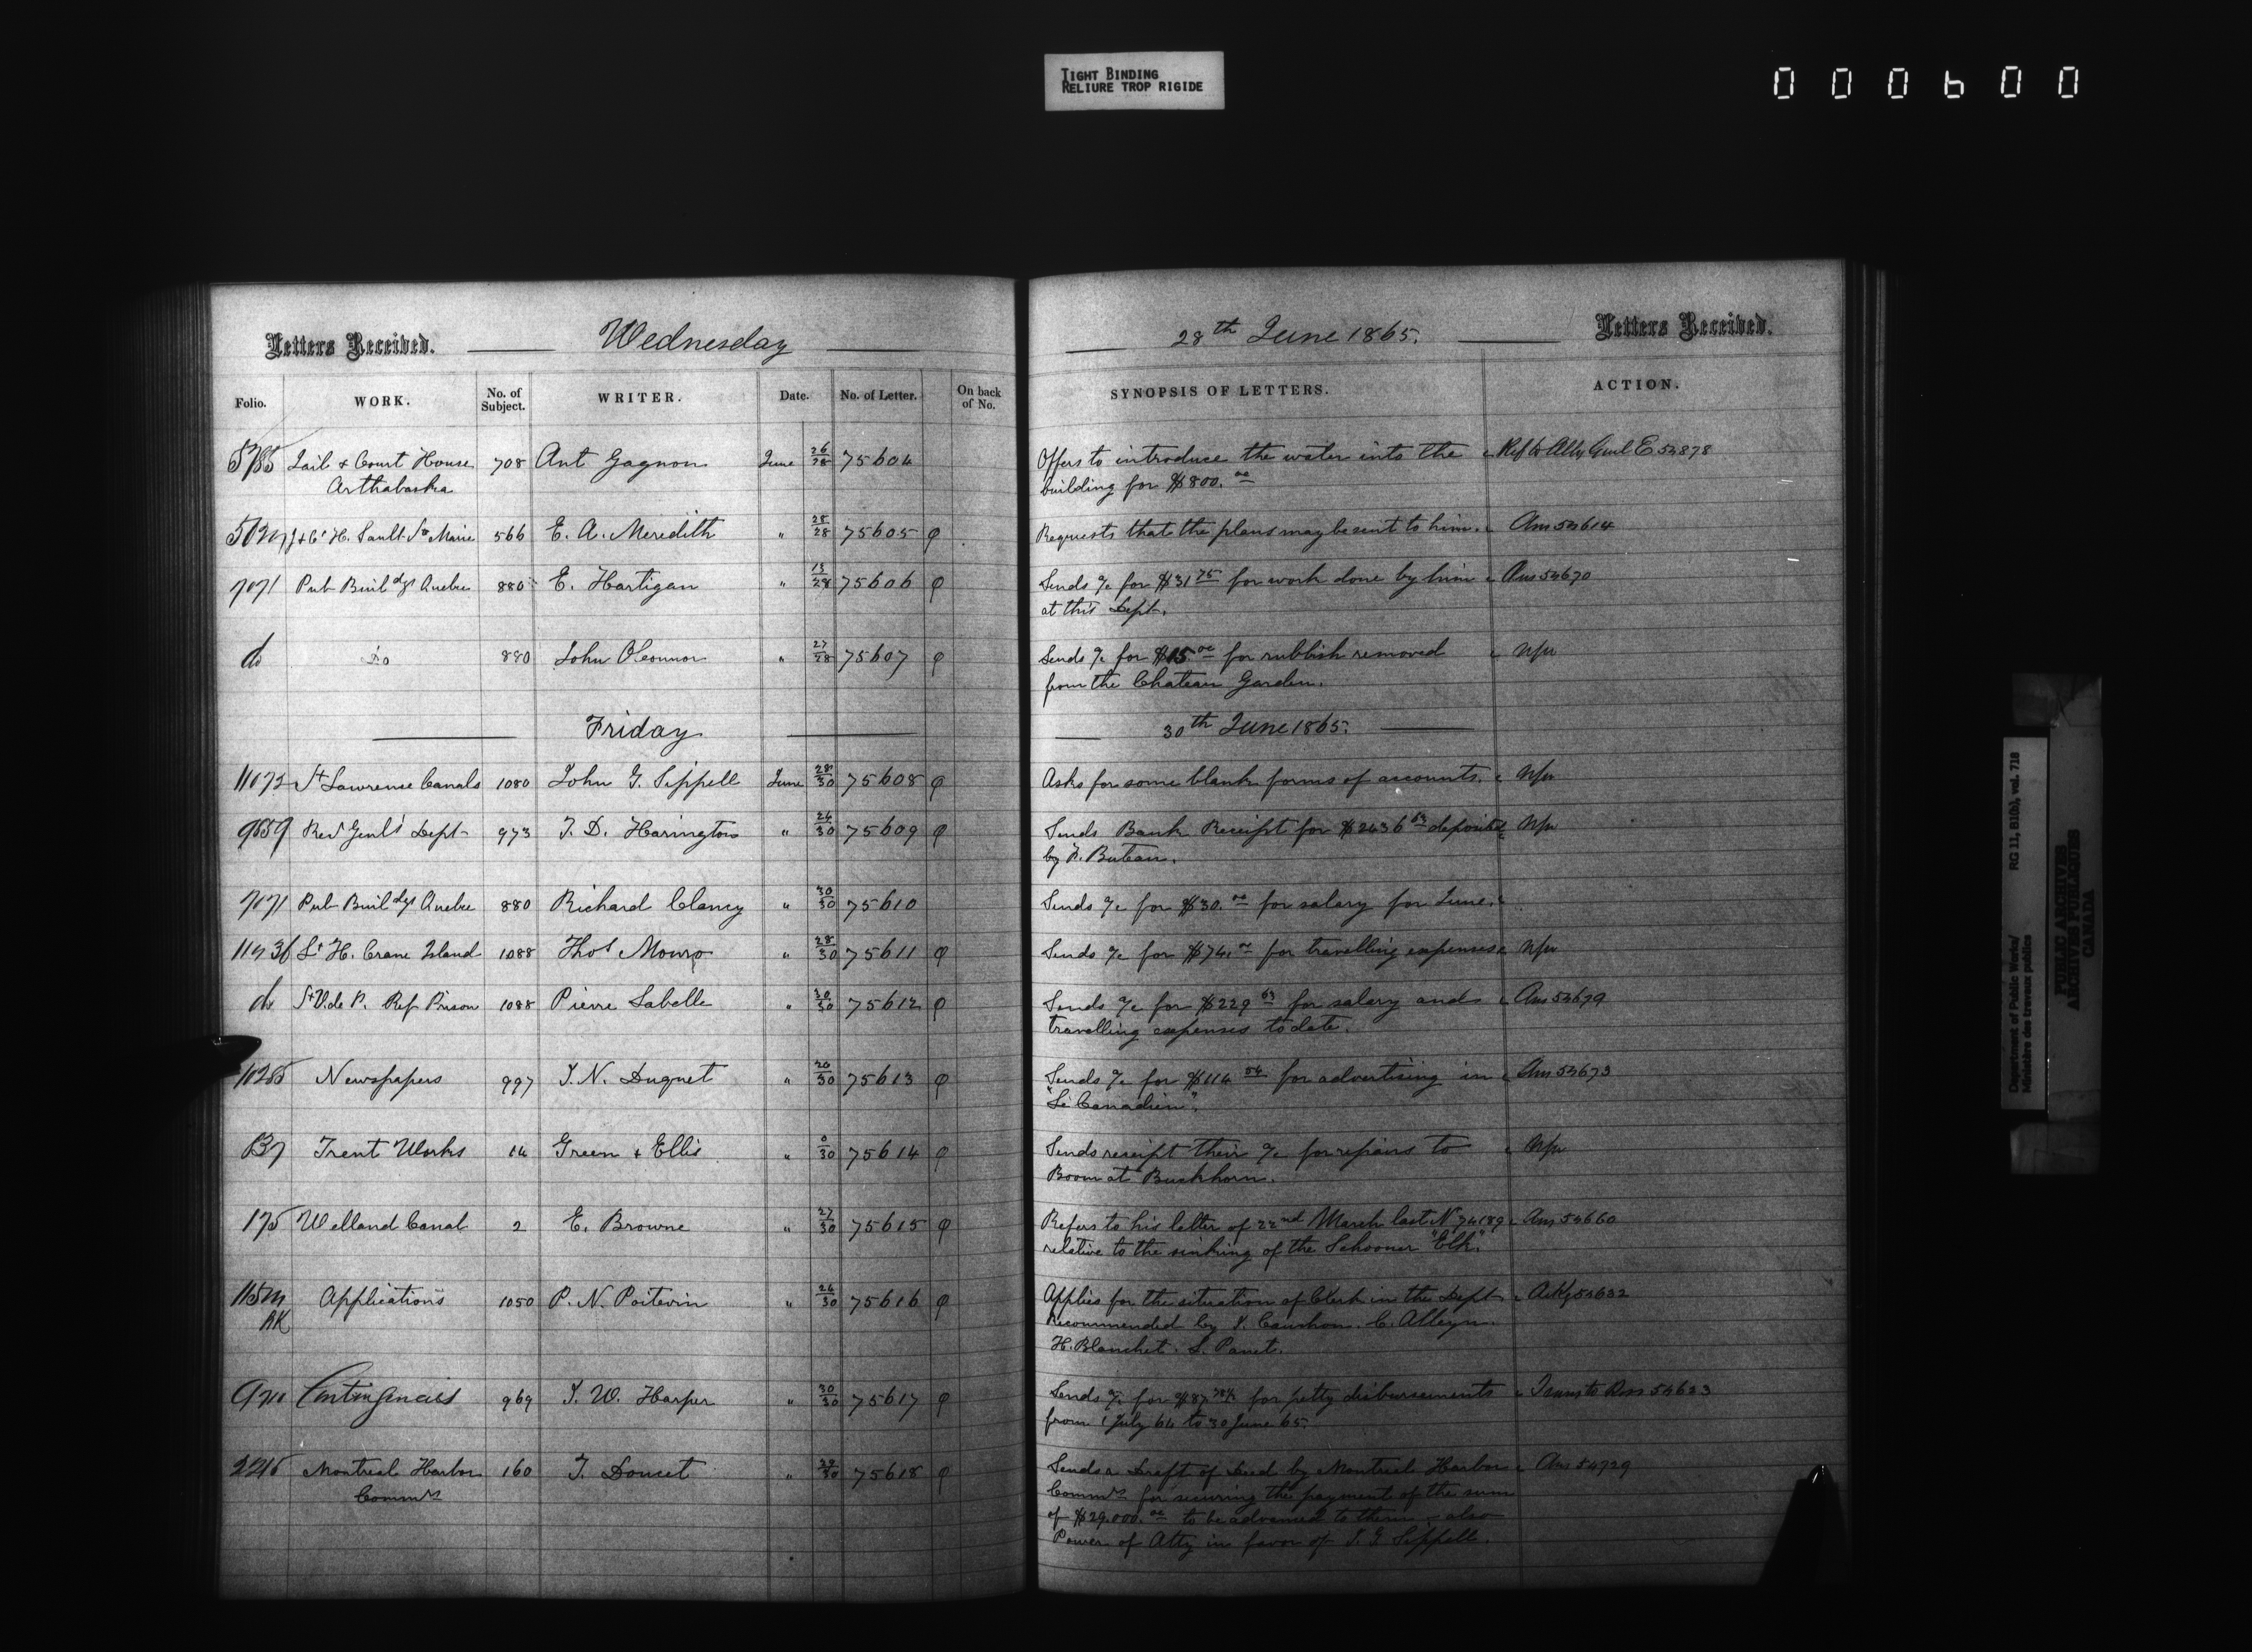 TIGHT BINDING
RELIURE TROP RIGIDE
000600
Letters Received. Wednesday 28th June 1865. Letters Received.
Folio. WORK. No. of Subject. WRITER. Date. No. of Letter. On back of No. SYNOPSIS OF LETTERS. ACTION.
5785 Jail & Court House 708 Ant Gagnon June 26/28 75604 Offers to introduce the water into the Ref to Atty Genl E 54878
Arthabaska building for $800.00
J & Ct H. Sault Ste Marie 566 E. A. Meredith " 28/28 75605 φ Requests that the plans may be sent to him. Ans 54614
7071 Pub Buildgs Quebec 880 E. Hartigan " 13/28 75606 φ Sends a/c for $31 75 for work done by him Ans 54670
at this Dept.
do Do 880 John Oconnor " 27/28 75607 φ Sends a/c for $15.00 for rubbish removed
from the Chateau Garden.
Friday 30th June 1865.
11072 St Lawrence Canals 1080 John G. Sippell June 28/30 75608 φ Asks for some blank forms of accounts.
9659 Recr Genls Dept 973 T. D. Harington " 24/30 75609 φ Sends Bank Receipt for $2436 63 deposited
by N. Buteau.
7071 Pub Buildgs Quebec 880 Richard Clancy " 30/30 75610 Sends a/c for $30.00 for salary for June.
11136 Lt H. Crane Island 1088 Thos Monro " 28/30 75611 φ Sends a/c for $74.00 for travelling expenses
do St V. de P. Ref Prison 1088 Pierre Labelle " 30/30 75612 φ Sends a/c for $229 63 for salary and Ans 54679
travelling expenses to date.
10285 Newspapers 997 J. N. Duquet " 26/30 75613 φ Sends a/c for $114 54 for advertising in Ans 54673
"Le Canadien".
B7 Trent Works 14 Green & Ellis " 0/30 75614 φ Sends receipt their a/c for repairs to
Boom at Buckhorn.
175 Welland Canal 2 E. Browne " 27/30 75615 φ Refers to his letter of 22nd March last N 74189 Ans 54660
relative to the sinking of the Schooner "Elk".
115m Applications 1050 P. N. Poitevin " 26/30 75616 φ Applies for the situation of Clerk in the Dept Ackg 54632
AK Recommended by J. Cauchon. C. Alleyn.
H. Blanchet. L. Panet.
9710 Contingencies 969 J. W. Harper " 30/30 75617 φ Sends a/c for $87 78½ for petty disbursements Trans to Ross 54623
from 1 July 64 to 30 June 65.
2216 Montreal Harbor 160 T. Doucet " 29/30 75618 φ Sends a Draft of Deed by Montreal Harbor Ans 54729
Commrs Commrs for securing the payment of the sum
of $29.000.00 to be advanced to them - also
Power of Atty in favor of J. G. Sippell.
Department of Public Works/ RG 11, B1(b), vol. 718
Ministère des travaux publics
PUBLIC ARCHIVES
ARCHIVES PUBLIQUES
CANADA